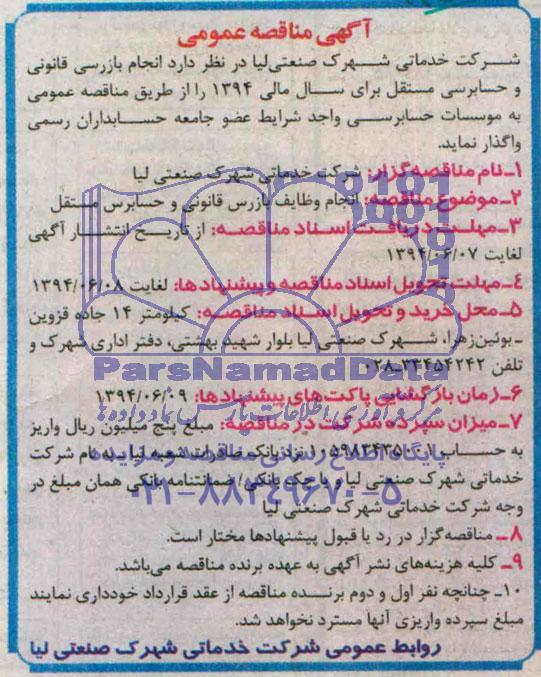 آگهی مناقصه عمومی
شرکت خدماتی شهرک صنعتی لیا در نظر دارد انجام بازرسی قانونی
و حسابرسی مستقل برای سال مالی ۱۳۹۴ را از طریق مناقصه عمومی
به موسسات حسابرسی واجد شرایط عضو جامعه حسابداران رسمی
واگذار نماید.
۱ـ نام مناقصه‌گزار: شرکت خدماتی شهرک صنعتی لیا
۲ـ موضوع مناقصه: انجام وظایف بازرس قانونی و حسابرس مستقل
۳ـ مهلت دریافت اسناد مناقصه: از تاریخ انتشار آگهی
لغایت ۱۳۹۴/۰۶/۰۷
۴ـ مهلت تحویل اسناد مناقصه و پیشنهادها: لغایت ۱۳۹۴/۰۶/۰۸
۵ـ محل خرید و تحویل اسناد مناقصه: کیلومتر ۱۴ جاده قزوین
ـ بوئین‌زهرا، شهرک صنعتی لیا بلوار شهید بهشتی، دفتر اداری شهرک و
تلفن ۳۳۴۵۴۲۴۲-۰۲۸
ParsNamadData
۶ـ زمان بازگشایی پاکت‌های پیشنهادها: ۱۳۹۴/۰۶/۰۹
مرکز فرآوری اطلاعات پارس نماد داده‌ها
۷ـ میزان سپرده شرکت در مناقصه: مبلغ پنج میلیون ریال واریز
به حساب نزد بانک صادرات شعبه لیا به نام شرکت
پایگاه اطلاع رسانی مناقصه و مزایده
خدماتی شهرک صنعتی لیا و یا چک بانکی/ ضمانتنامه بانکی همان مبلغ در
۰۲۱-۸۸۳۴۹۶۷۰-۵
وجه شرکت خدماتی شهرک صنعتی لیا
۸ـ مناقصه‌گزار در رد یا قبول پیشنهادها مختار است.
۹ـ کلیه هزینه‌های نشر آگهی به عهده برنده مناقصه می‌باشد.
۱۰ـ چنانچه نفر اول و دوم برنده مناقصه از عقد قرارداد خودداری نمایند
مبلغ سپرده واریزی آنها مسترد نخواهد شد.
روابط عمومی شرکت خدماتی شهرک صنعتی لیا